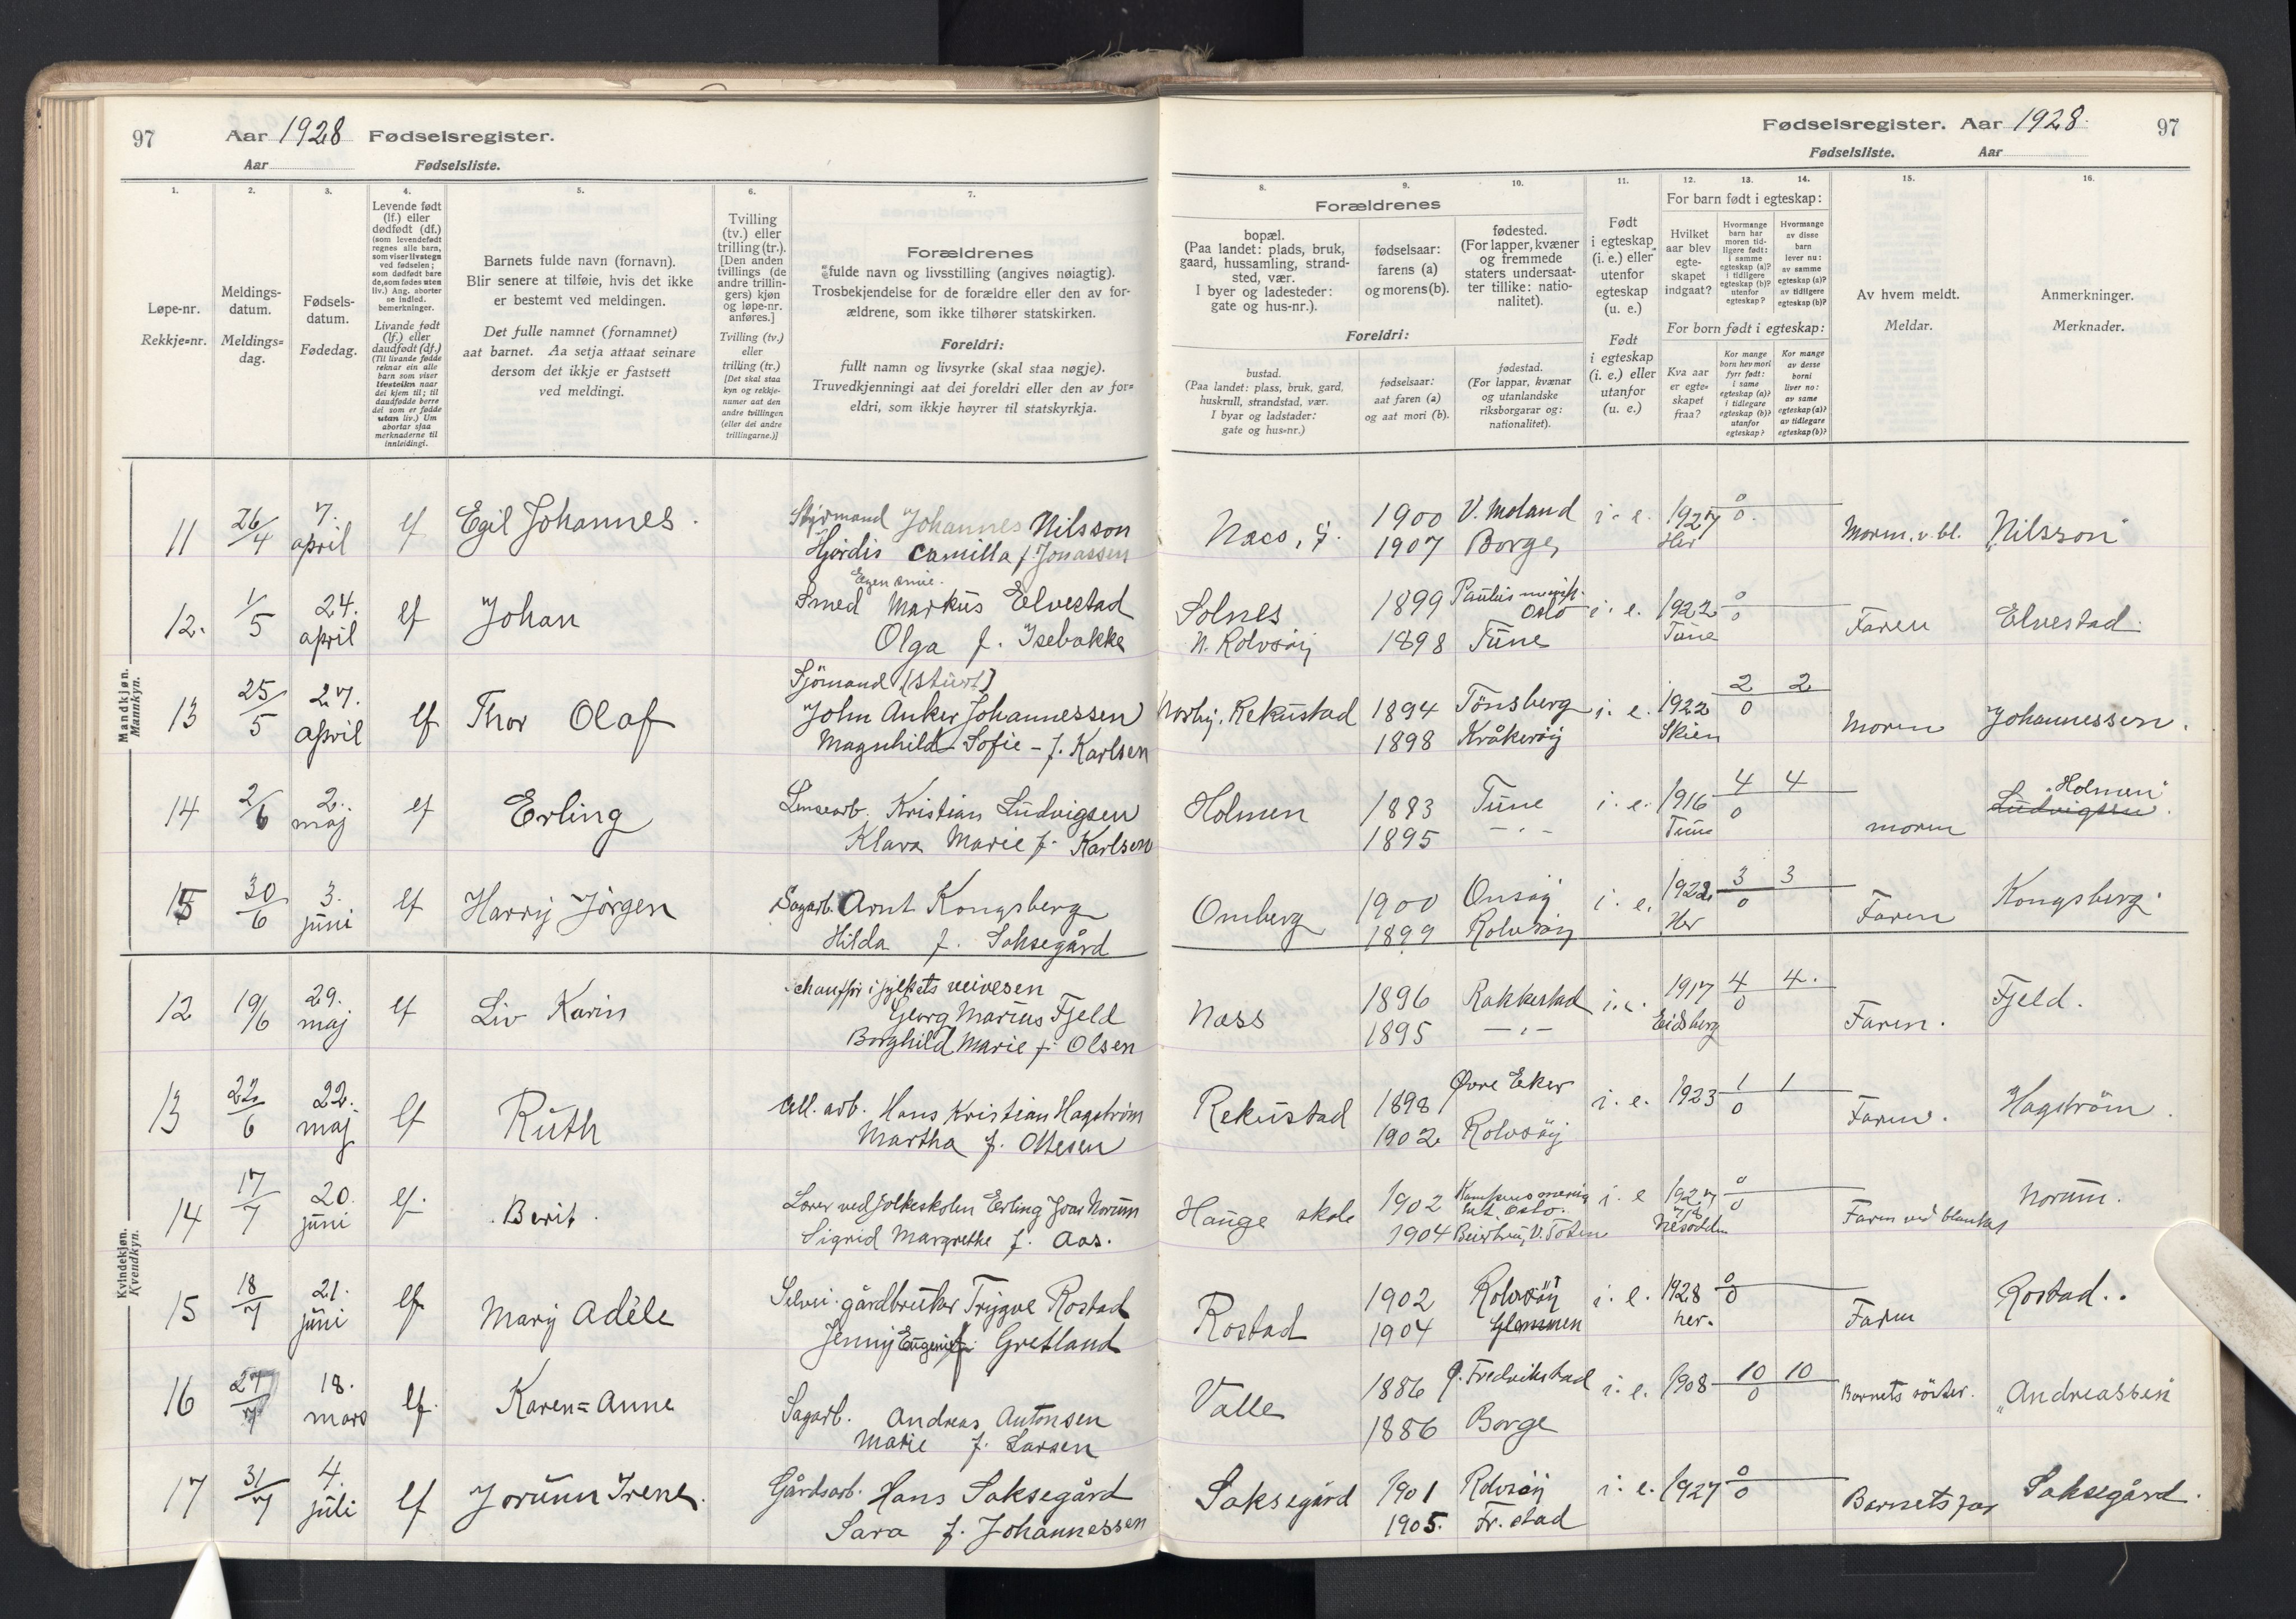 97 Aar 1928 Fødselsregister.
Aar Fødselsliste.
1. 2. 3. 4. 5. 6. 7.
Løpe-nr.
Rekkje=nr.
Meldings-
datum.
Meldings=
dag.
Fødsels-
datum.
Fødedag.
Levende født
(lf.) eller
dødfødt (df.)
(som levendefødt
regnes alle barn,
som viser livstegn
ved fødselen;
som dødfødt bare
de, som fødes uten
liv.) Ang. aborter
se indled.
bemerkninger.
Livande født
(lf.) eller
daudfødt (df.)
(Til livande fødde
reknar ein alle
barn som viser
livsteikn naar
dei kjem til; til
daudfødde berre
dei som er fødde
utan liv.) Um
abortar sjaa
merknaderne til
innleidingi.
Barnets fulde navn (fornavn).
Blir senere at tilføie, hvis det ikke
er bestemt ved meldingen.
Det fulle namnet (fornamnet)
aat barnet. Aa setja attaat seinare
dersom det ikkje er fastsett
ved meldingi.
Tvilling
(tv.) eller
trilling (tr.).
[Den anden
tvillings (de
andre trillin-
gers) kjøn
og løpe-nr.
anføres.]
Tvilling (tv.)
eller
trilling (tr.)
[Det skal staa
kyn og rekkje-
numer aat den
andre tvillingen
(eller dei andre
trillingarne.)]
Forældrenes
fulde navn og livsstilling (angives nøiagtig).
Trosbekjendelse for de forældre eller den av for-
ældrene, som ikke tilhører statskirken.
Foreldri:
fullt namn og livsyrke (skal staa nøgje).
Truvedkjenningi aat dei foreldri eller den av for=
eldri, som ikkje høyrer til statskyrkja.
Mandkjøn.
Mannkyn.
11 26/4 7. april lf Egil Johannes. Styrmand Johannes Nilsson
Hjördis Camilla f. Jonassen
Egen smie.
12. 1/5 24. april lf Johan Smed Markus Elvestad
Olga f. Isebakke
Sjömand (stuert)
13 25/5 27. april lf Thor Olaf John Anker Johannessen
Magnhild Sofie - f. Karlsen
14 2/6 2. maj lf Erling Lensearb. Kristian Ludvigsen
Klara Marie f. Karlsen
15 30/6 3. juni lf Harry Jörgen Sagarb. Arnt Kongsberg
Hilda f. Saksegård
Kvindekjøn.
Kvendkyn.
12 19/6 29. maj lf Liv Karin Chauffør i fylkets veivesen
Georg Marius Fjeld
Borghild Marie f. Olsen
13 22/6 22. maj lf Ruth All. arb. Hans Kristian Hagström
Martha f. Ottesen
14 17/7 20. juni lf. Berit. Lærer ved folkeskolen Erling Ivar Norum
Sigrid Margrethe f. Aas.
15 18/7 21. juni lf. Mary Adèle Selvei. gårdbruker Trygve Rostad
Jenny Eugenie f. Gretland
16 27/7 18. mars lf. Karen=Anne Sagarb. Andreas Antonsen
Marie f. Larsen
17 31/7 4. juli lf Jorunn Irene. Gårdsarb. Hans Saksegård
Sara f. Johannessen
Fødselsregister. Aar 1928. 97
Fødselsliste. Aar
8. 9. 10. 11. 12. 13. 14. 15. 16.
Forældrenes
bopæl.
(Paa landet: plads, bruk,
gaard, hussamling, strand-
sted, vær.
I byer og ladesteder:
gate og hus-nr.).
fødselsaar:
farens (a)
og morens (b).
fødested.
(For lapper, kvæner
og fremmede
staters undersaat-
ter tillike: natio-
nalitet).
Foreldri:
bustad.
(Paa landet: plass, bruk, gard,
huskrull, strandstad, vær.
I byar og ladstader:
gate og hus=nr.)
fødselsaar:
aat faren (a)
og aat mori (b).
fødestad.
(For lappar, kvænar
og utanlandske
riksborgarar og:
nationalitet).
Født
i egteskap
(i. e.) eller
utenfor
egteskap
(u. e.)
Født
i egteskap
(i. e.) eller
utanfor
(u. e.)
For barn født i egteskap:
Hvilket
aar blev
egte-
skapet
indgaat?
Hvormange
barn har
moren tid-
ligere født:
i samme
egteskap (a)?
i tidligere
egteskap (b)?
utenfor
egteskap?
Hvormange
av disse
barn
lever nu:
av samme
egteskap (a)?
av tidligere
egteskap (b)?
For born født i egteskap:
Kva aar
er egte=
skapet
fraa?
Kor mange
born hev mori
fyrr født:
i same
egteskap (a)?
i tidlegare
egteskap (b)?
utanfor
egteskap?
Kor mange
av desse
borni
liver no:
av same
egteskap (a)?
av tidlegare
egteskap (b)?
Av hvem meldt.
Meldar.
Anmerkninger.
Merknader.
Naes, 1900 V. Moland i. e. 1927 0/0 Moren v. bl. "Nilsson"
1907 Borge, Her
Solnes 1899 Paulus menigh. Oslo i. e. 1922 0/0 Faren Elvestad.
N. Rolvsöy 1898 Tune Tune
Norby, Rekustad 1894 Tönsberg i. e. 1922 2/0 2 Moren Johannessen.
1898 Kråkeröy Skien
Holmen 1883 Tune i. e. 1916 4/0 4 moren "Holmen"
Ludvigsen.
1895 - " - Tune
Omberg 1900 Onsöy i. e. 1922 3/0 3 Faren Kongsberg.
1899 Rolvsöy Her
Næss 1896 Rakkestad i. e. 1917 4/0 4. Faren. Fjeld.
1895 - " - Eidsberg
Rekustad 1898 Øvre Eker i. e. 1923 1/0 1 Faren. Hagström.
1902 Rolvsöy
Hauge skole 1902 Oslo. i. e 1927 0/0 Faren ved blanket Norum.
1904 V. Toten Nesodden
Rostad 1902 Rolvsöy i. e. 1928 0/0 Faren Rostad..
1904 Glemmen her.
Valle 1886 Fredrikstad i. e. 1908 10/0 10 Barnets söster. "Andreassen"
1886 Borge
Saksegård 1901 Rolvsöy i. e. 1927 0/0 Barnets far Saksegård.
1905. Fr. stad